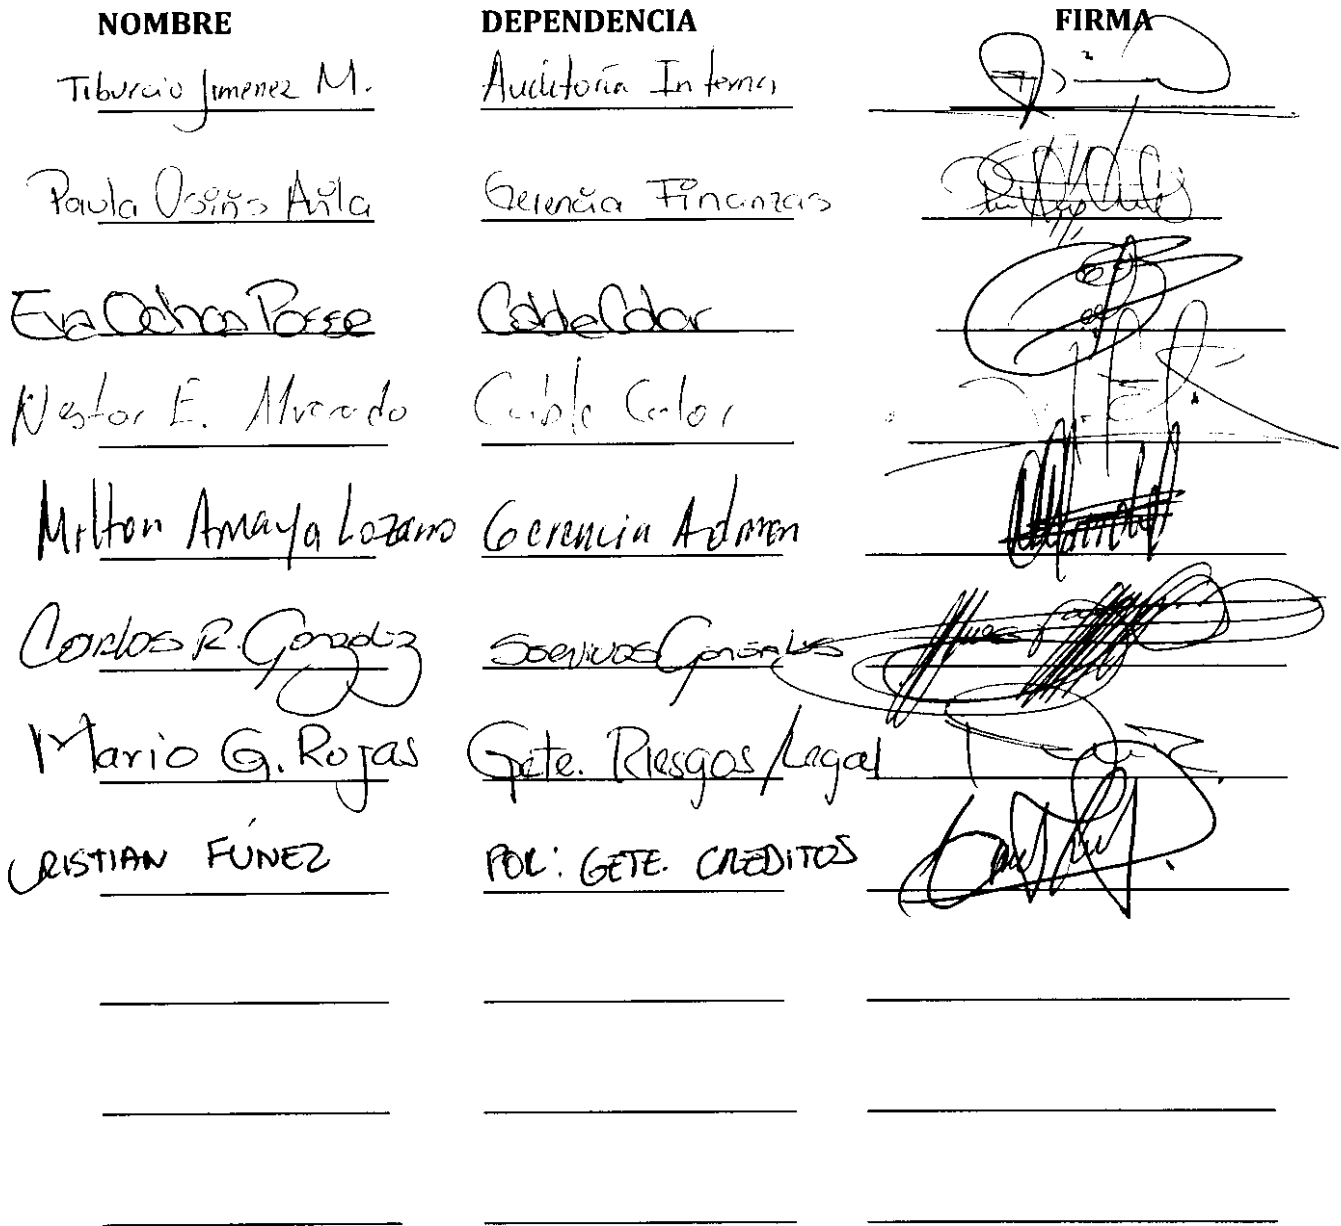 NOMBRE DEPENDENCIA FIRMA
Tiburcio Jimenez M. Auditoría Interna
Paula Gerencia Finanzas
Eva Ochoa Posse Cable Color
Nestor E. Alvarado Cable Color
Milton Amaya Lozano Gerencia Admon
Carlos R. Gonzalez Servicios Generales
Mario G. Rojas Gcte. Riesgos/Legal
CRISTIAN FÚNEZ POR: GETE. CREDITOS